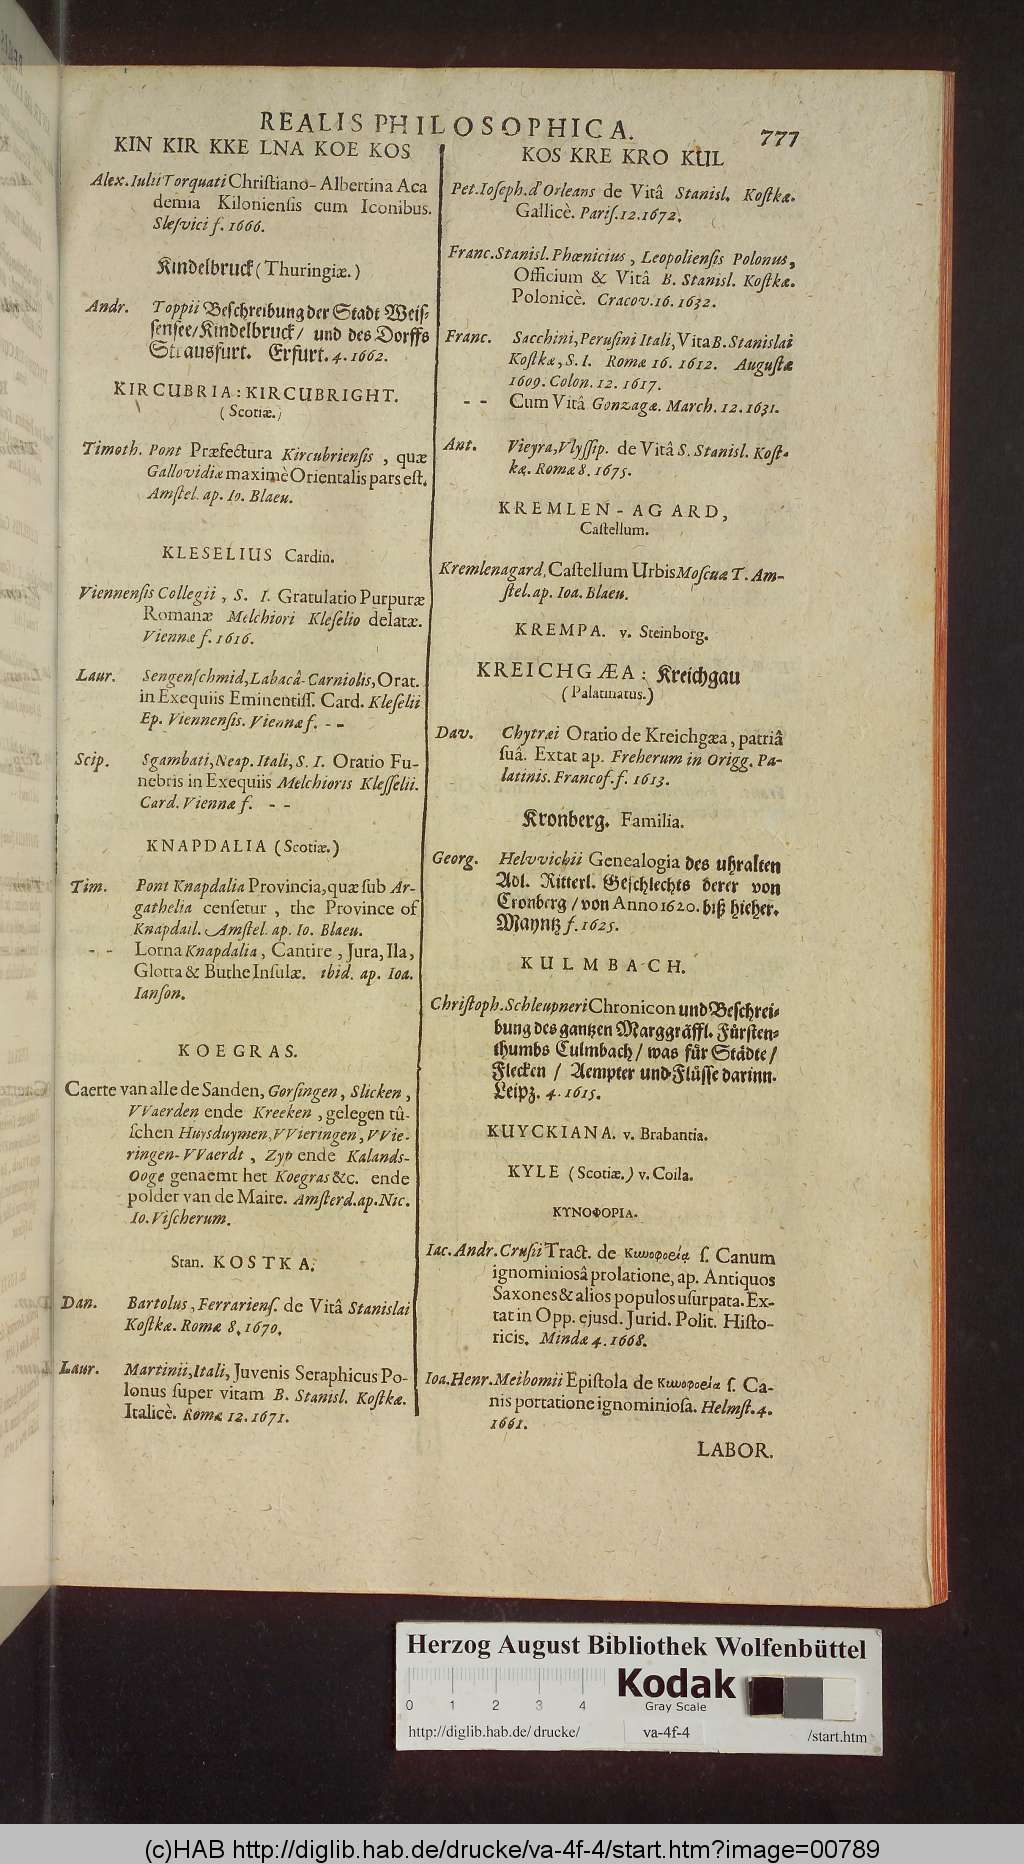 REALIS PHILOSOPHICA.
777
KIN KIR KKE LNA KOE KOS
Alex. Iulii Torquati Christiano-Albertina Aca
demia Kiloniensis cum Iconibus.
Slesvici f. 1666.
Kindelbruck (Thuringiæ.)
Andr. Toppii Beschreibung der Stadt Weis-
sensee/Kindelbruck/ und des Dorffs
Strausfurt. Erfurt. 4. 1662.
KIRCUBRIA: KIRCUBRIGHT.
(Scotiæ.)
Timoth. Pont Præfectura Kircubriensis, quæ
Gallovidiæ maximè Orientalis pars est.
Amstel. ap. Io. Blaeu.
KLESELIUS Cardin.
Viennensis Collegii, S. I. Gratulatio Purpuræ
Romanæ Melchiori Kleselio delatæ.
Viennæ f. 1616.
Laur. Sengenschmid, Labacâ-Carniolis, Orat.
in Exequiis Eminentiss. Card. Kleselii
Ep. Viennensis. Viennæ f. - -
Scip. Sgambati, Neap. Itali, S. I. Oratio Fu-
nebris in Exequiis Melchioris Klesselii.
Card. Viennæ f. - -
KNAPDALIA (Scotiæ.)
Tim. Pont Knapdalia Provincia, quæ sub Ar-
gathelia censetur, the Province of
Knapdail. Amstel. ap. Io. Blaeu.
- - Lorna Knapdalia, Cantire, Jura, Ila,
Glotta & Buthe Insulæ. ibid. ap. Ioa.
Ianson.
KOEGRAS.
Caerte van alle de Sanden, Gorsingen, Slicken,
VVaerden ende Kreeken, gelegen tû-
schen Huysduymen, VVieringen, VVie-
ringen-VVaerdt, Zyp ende Kalands-
Ooge genaemt het Koegras &c. ende
polder van de Maire. Amsterd. ap. Nic.
Io. Vischerum.
Stan. KOSTKA.
Dan. Bartolus, Ferrariens. de Vitâ Stanislai
Kostkæ. Romæ 8. 1670.
Laur. Martinii, Itali, Juvenis Seraphicus Po-
lonus super vitam B. Stanisl. Kostkæ.
Italicè. Romæ 12. 1671.
KOS KRE KRO KUL
Pet. Ioseph. d'Orleans de Vitâ Stanisl. Kostkæ.
Gallicè. Paris. 12. 1672.
Franc. Stanisl. Phœnicius, Leopoliensis Polonus,
Officium & Vitâ B. Stanisl. Kostkæ.
Polonicè. Cracov. 16. 1632.
Franc. Sacchini, Perusini Itali, Vita B. Stanislai
Kostkæ, S. I. Romæ 16. 1612. Augustæ
1609. Colon. 12. 1617.
- - Cum Vitâ Gonzagæ. March. 12. 1631.
Ant. Vieyra, Vlyssip. de Vitâ S. Stanisl. Kost-
kæ. Romæ 8. 1675.
KREMLEN-AGARD,
Castellum.
Kremlenagard, Castellum Urbis Moscuæ T. Am-
stel. ap. Ioa. Blaeu.
KREMPA. v. Steinborg.
KREICHGÆA: Kreichgau
(Palatinatus.)
Dav. Chytræi Oratio de Kreichgæa, patriâ
suâ. Extat ap. Freherum in Origg. Pa-
latinis. Francof. f. 1613.
Kronberg. Familia.
Georg. Helvvichii Genealogia des uhralten
Adl. Ritterl. Geschlechts derer von
Cronberg/von Anno 1620. biß hieher.
Mayntz f. 1625.
KULMBACH.
Christoph. Schleupneri Chronicon und Beschrei-
bung des gantzen Marggräffl. Fürsten-
thumbs Culmbach/ was für Städte/
Flecken / Aempter und Flüsse darinn.
Leipz. 4. 1615.
KUYCKIANA. v. Brabantia.
KYLE (Scotiæ.) v. Coila.
ΚΥΝΟΦΟΡΙΑ.
Iac. Andr. Crusii Tract. de Κυνοφορεία s. Canum
ignominiosâ prolatione, ap. Antiquos
Saxones & alios populos usurpata. Ex-
tat in Opp. ejusd. Jurid. Polit. Histo-
ricis. Mindæ 4. 1668.
Ioa. Henr. Meibomii Epistola de Κυνοφορεία s. Ca-
nis portatione ignominiosa. Helmst. 4.
1661.
LABOR.
Herzog August Bibliothek Wolfenbüttel
0 1 2 3 4
Kodak
Gray Scale
http://diglib.hab.de/drucke/ va-4f-4 /start.htm
(c)HAB http://diglib.hab.de/drucke/va-4f-4/start.htm?image=00789